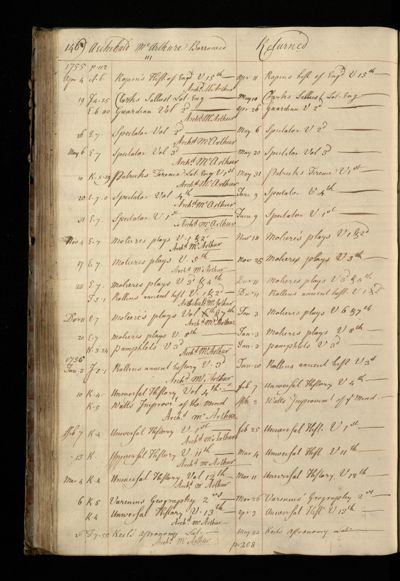 146 Archibald McArthure Borrowed Returned
1755 p. 112
Apr 4 Rapins Hist of Engd V 15th Apr 11 Rapins hist of Engd V 15th
Archd McArthur
19 Clarks Sallust Lat. Eng May 10 Clarks Sallust Lat. Eng
Guardian Vol 2d Apr 26 Guardian V 2d
Archd McArthur
26 E.7 Spectator Vol 2d May 6 Spectator V 2d
Archd McArthur
May 6 E.7 Spectator Vol 3d May 20 Spectator Vol 3d
Archd McArthur
Patricks Terence Lat. Eng V 1st May 31 Patricks Terence V 1st
Archd McArthur
20 E.7 Spectator Vol 4th June 9 Spectator V 4th
Archd McArthur
31 E.7 Spectator V 1st June 9 Spectator V 1st
Archd McArthur
Nov 4 E.7 Molieres plays V 1 & 2 Nov 18 Molieres plays V 1 & 2
Archd McArthur
17 E.7 Molieres plays V. 5th Nov 25 Molieres plays V 5th
Archd McArthur
E.7 Molieres plays V 3d & 4th Molieres plays V 3d & 4th
Rollins ancient hist. V 1 & 2 Rollins ancient hist. V 1 & 2
Archibald McArthur
E.7 Moliere's plays Vol 6th & 7th Jan 2 Molieres plays V 6 & 7th
Archd McArthur
20 E.7 molieres plays V. 8th Jan 2 Molieres plays V 8th
Pamphlets V 3d Jan 2 pamphlets V 3d
Archd McArthur
1756
Jan 2 Rollins ancient history V. 3d Jan 20 Rollins ancient hist V 3d
Archd McArthur
10 K.4 Universal History Vol 4th Feb 7 Universal History V 4th
K.7 Watts Improve. of the Mind Feb 2 Watts Improvemt of ye Mind
Archd McArthur
Feb 7 K.4 Universal History V 1st Feb 25 Universal Hist. V 1st
Archd McArthur
13 K Universal History V. 11th Mar 4 Universal Hist V 11th
Archd McArthur
Mar 4 K.4 Universal History Vol 12th Mar 11 Universal History V 12th
Archd McArthur
6 K.5 Varenius Geography 2 vs Mar 26 Varenius' Geography 2 vs
K.4 Universal History V. 13th Apr. 2 Universal Hist V 13th
Archd McArthur
Keils astronomy Lat May 22 Keils astronomy Lat
Archd McArthur p. 208